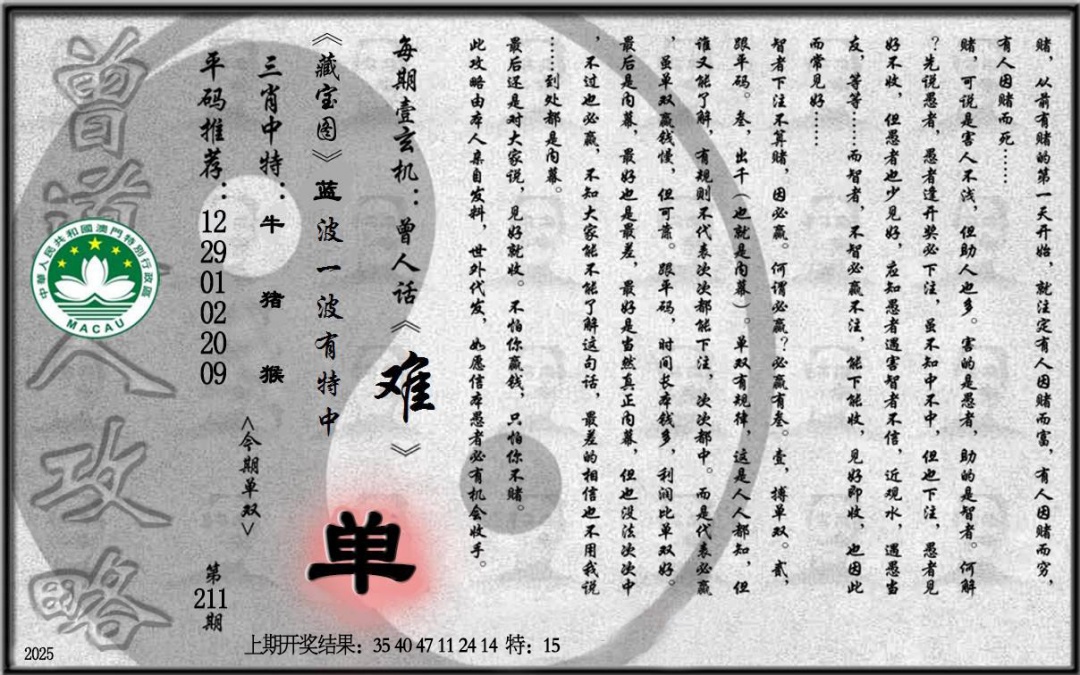 赌，从前有赌的第一天开始，就注定有人因赌而富，有人因赌而穷，
有人因赌而死……
赌，可说是害人不浅，但助人也多。害的是愚者，助的是智者。何解
？先说愚者，愚者逢开奖必下注，虽不知中不中，但也下注，愚者见
好不收，但愚者也少见好，应知愚者遇害智者不信，近观水，遇愚当
友，等等……而智者，不智必赢不注，能下能收，见好即收，也因此
而常见好……
智者下注不算赌，因必赢。何谓必赢？必赢有叁。壹，搏单双。贰，
跟单码。叁，出千（也就是内幕）。单双有规律，这是人人都知，但
谁又能了解，有规则不代表次次都能下注，次次都中。而是代表必赢
，虽单双赢钱慢，但可靠。跟单码，时间长本钱多，利润比单双好。
最后是内幕，最好也是最差，最好是当然真正内幕，但也没法次次中
，不过也必赢，不知大家能不能了解这句话，最差的相信也不用我说
……到处都是内幕。
最后还是对大家说，见好就收。不怕你赢钱，只怕你不赌。
此攻略由本人亲自发料，世外代发，如愿信本愚者必有机会收手。
每期壹玄机：曾人话《难》
《藏宝图》蓝波一波有特中
单
三肖中特：牛 猪 猴
<今期单双>
平码推荐：12 29 01 02 20 09
第211期
曾道人攻略
中華人民共和國澳門特別行政區
MACAU
上期开奖结果：35 40 47 11 24 14 特：15
2025